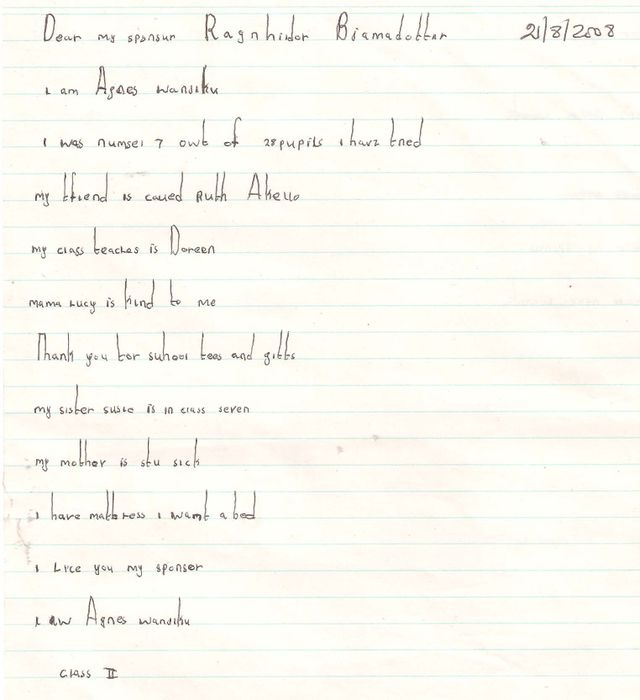 Dear my sponsur Ragnhidor Bjarnadotter 21/8/2008
I am Agnes wansiku
I was number 7 owt of 28 pupils I have tried
my ffriend is caued Ruth Akello
my class teaches is Doreen
mama Lucy is kind to me
Thank you for suhool fees and giffs
my sister susie is in class seven
my mother is stu sick
I have mattress I want a bed
I Lice you my sponser
I aw Agnes wansiku
CLASS II